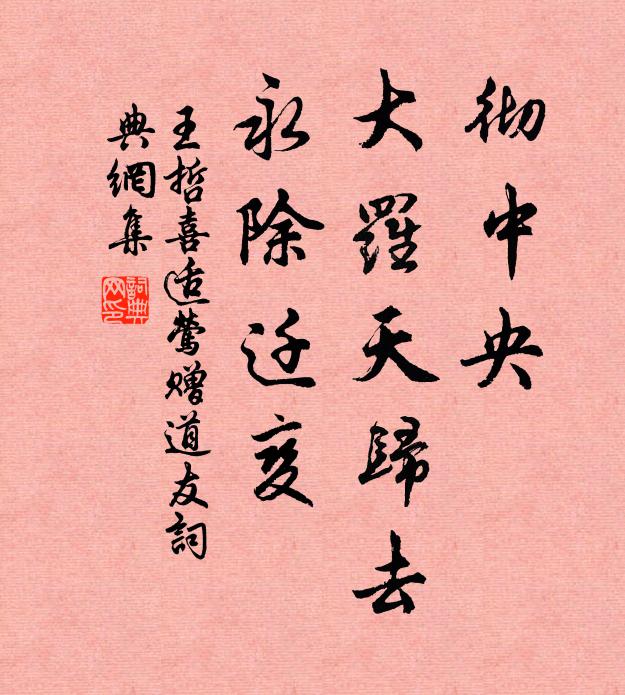 彻中央
大羅天歸去
永除迁变
王哲喜适鶯贈道友詞
典網集
詞典
网印